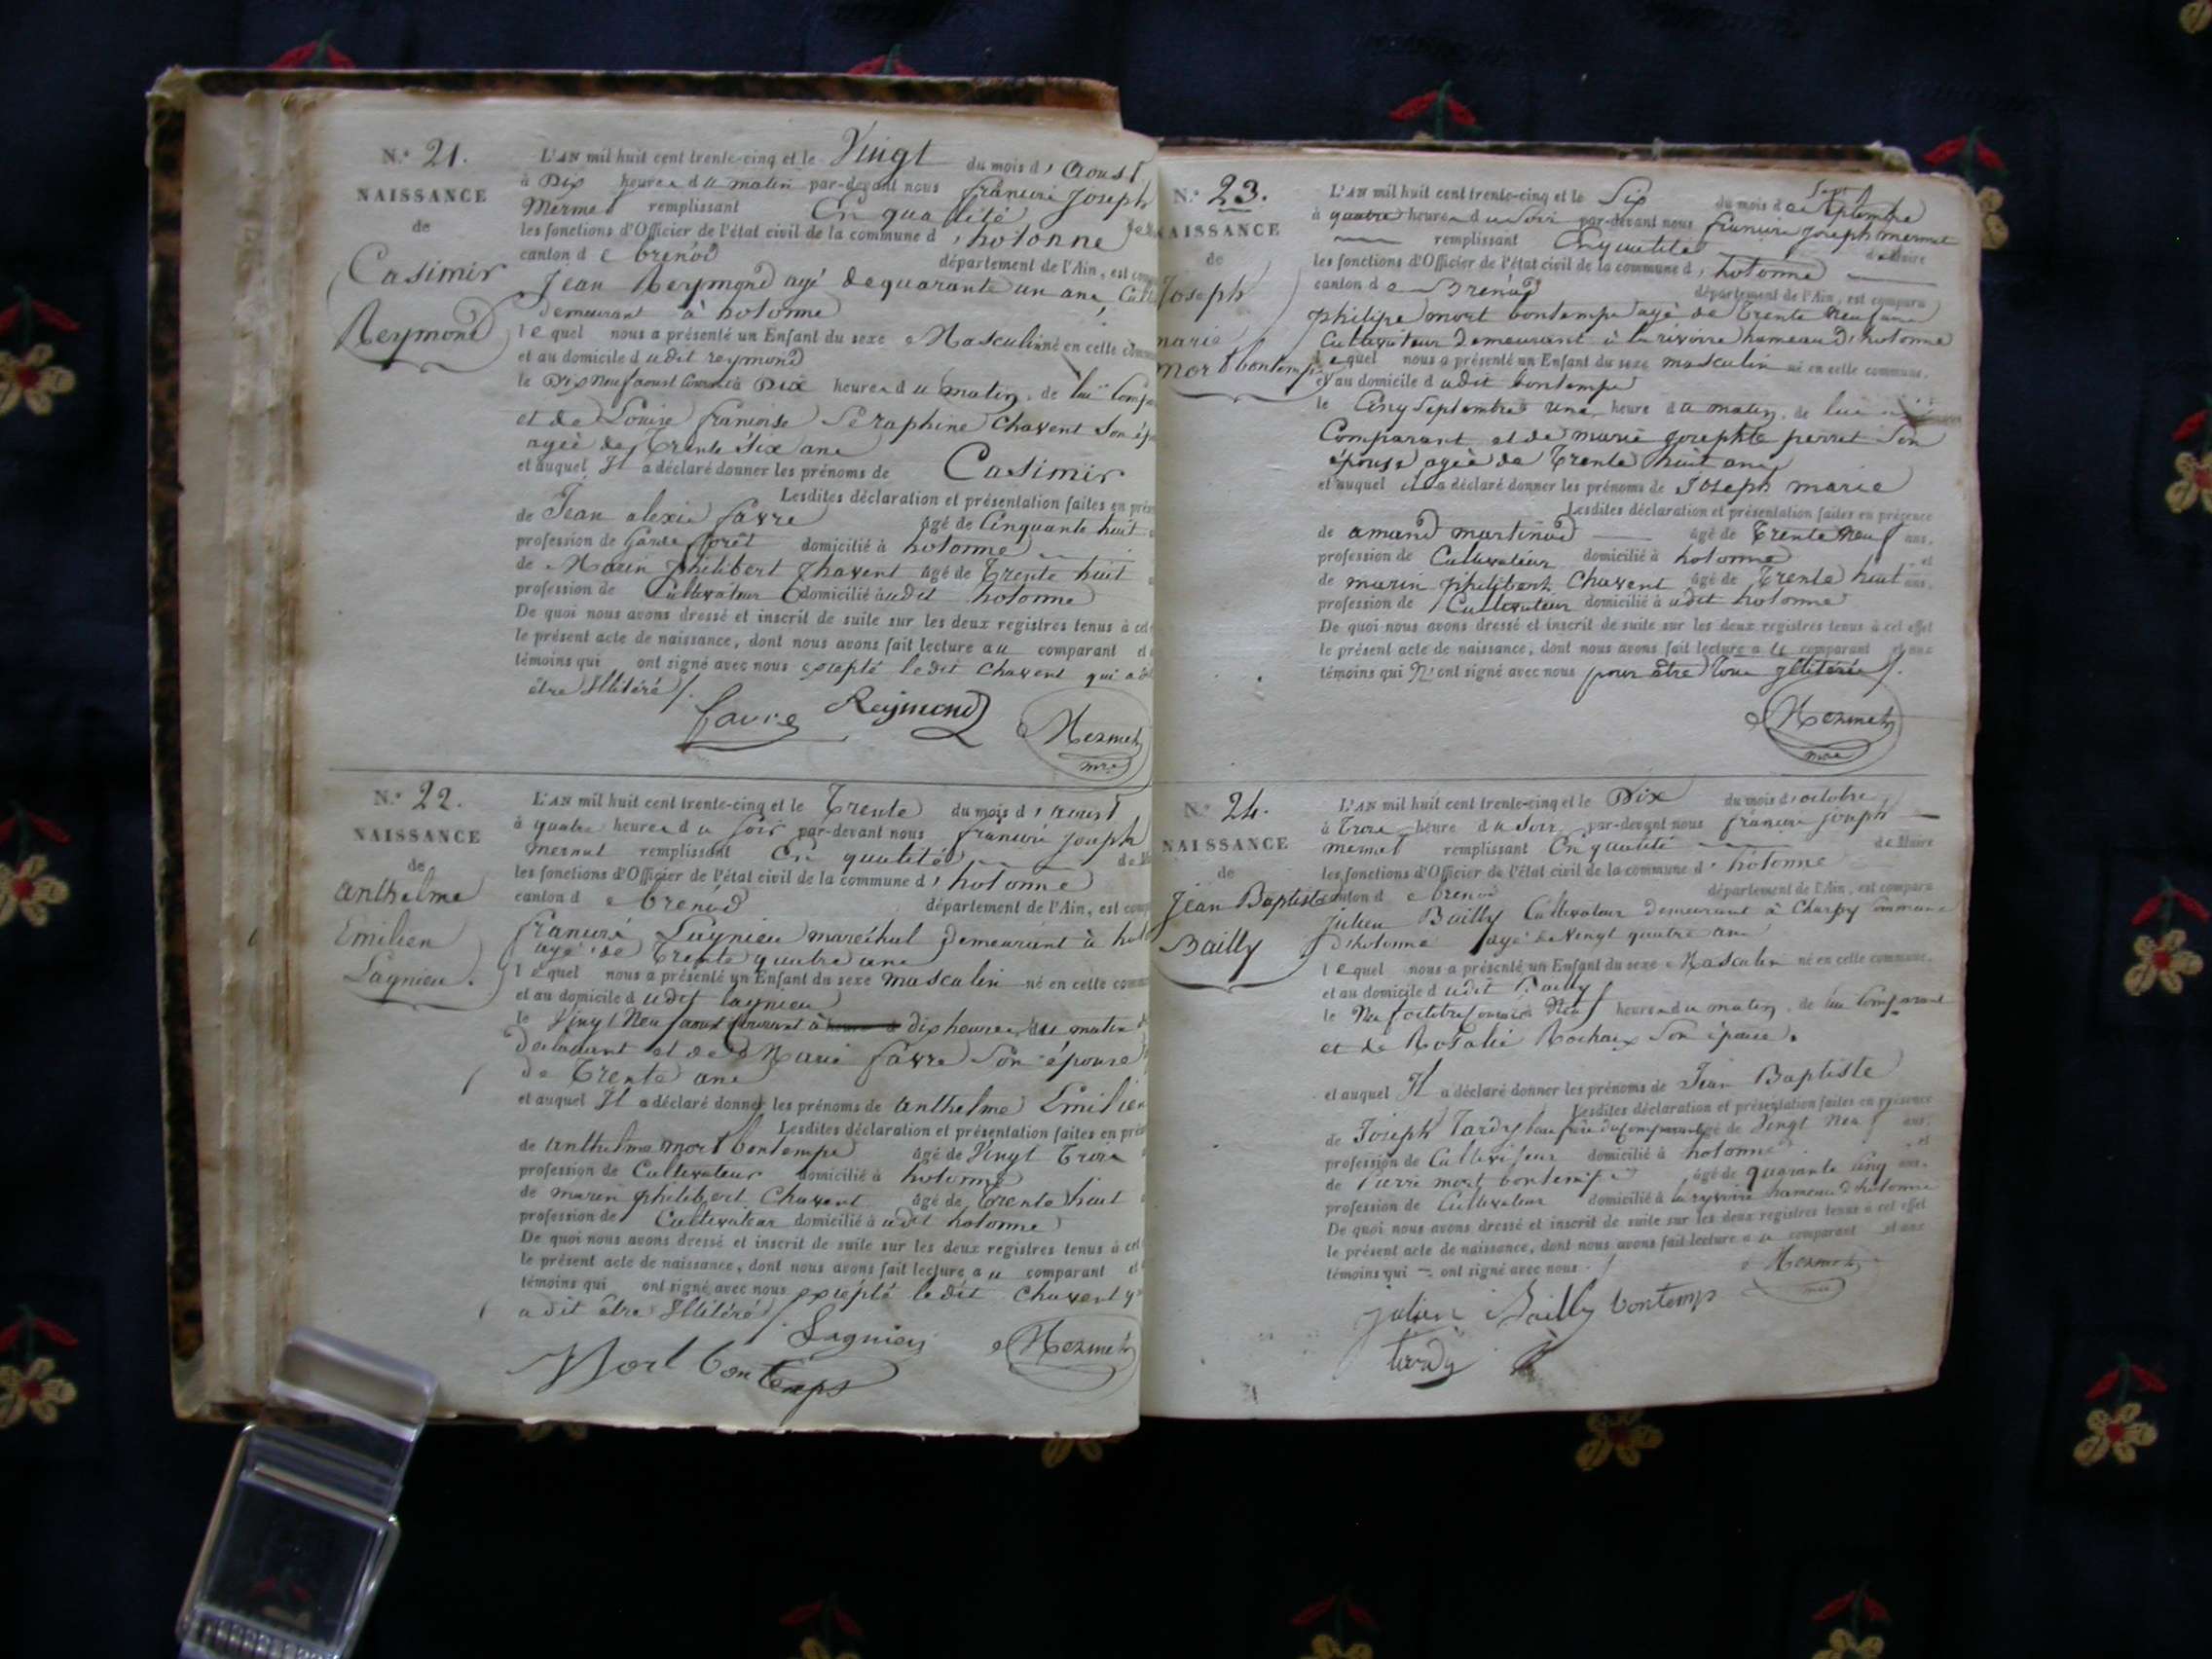 N.° 21.
NAISSANCE
de
Casimir
Reymond
L'AN mil huit cent trente-cinq et le Vingt du mois d'Aoust
à Dix heures du matin par-devant nous françois Joseph
Mermet remplissant En qualité
les fonctions d'Officier de l'état civil de la commune d'hotonne
canton de brenod département de l'Ain, est
Jean Reymond agé de quarante un ans
demeurant à hotonne
lequel nous a présenté un Enfant du sexe Masculin né en cette
et au domicile dudit reymond
le Dix Neuf aoust courant à Dix heures du matin, de lui
et de Louise françoise Séraphine Chavent son
agée de Trente Six ans
et auquel Il a déclaré donner les prénoms de Casimir
Lesdites déclaration et présentation faites en
de Jean alexis favre âgé de Cinquante huit
profession de Garde forêt domicilié à hotonne
de Marin philibert Chavent âgé de Trente huit
profession de Cultivateur domicilié audit hotonne
De quoi nous avons dressé et inscrit de suite sur les deux registres tenus à cet
le présent acte de naissance, dont nous avons fait lecture au comparant et
témoins qui ont signé avec nous excepté ledit Chavent qui a
être Illitéré /.
favre Reymond Mermet
mre
N.° 22.
NAISSANCE
de
anthelme
Emilien
Lagnieu.
L'AN mil huit cent trente-cinq et le Trente du mois d'aoust
à quatre heures du soir par-devant nous françois Joseph
mermet remplissant En qualité
les fonctions d'Officier de l'état civil de la commune d'hotonne
canton de brenod département de l'Ain, est
françois Lagnieu maréchal demeurant à
agé de Trente quatre ans
lequel nous a présenté un Enfant du sexe masculin né en cette
et au domicile dudit lagnieu
le Vingt Neuf aoust courant à dix heures du matin
déclarant et de Marie favre son épouse
de Trente ans
et auquel Il a déclaré donner les prénoms de anthelme Emilien
Lesdites déclaration et présentation faites en
de anthelme mort bontemps âgé de Vingt Trois
profession de Cultivateur domicilié à hotonne
de marin philibert Chavent âgé de Trente huit
profession de Cultivateur domicilié audit hotonne
De quoi nous avons dressé et inscrit de suite sur les deux registres tenus à cet
le présent acte de naissance, dont nous avons fait lecture au comparant et
témoins qui ont signé avec nous excepté ledit Chavent
a dit être Illitéré /.
Lagnieu Mermet
Mort bontemps
N.° 23.
NAISSANCE
de
Joseph
marie
mort bontemps
L'AN mil huit cent trente-cinq et le Six du mois de Septembre
à quatre heures du soir par-devant nous françois Joseph mermet
remplissant En qualité de Maire
les fonctions d'Officier de l'état civil de la commune d'hotonne
canton de Brenod département de l'Ain, est comparu
philipe mort bontemps agé de Trente Neuf ans
Cultivateur demeurant à la rivoire hameau d'hotonne
lequel nous a présenté un Enfant du sexe masculin né en cette commune.
et au domicile dudit bontemps
le Cinq Septembre une heure du matin, de lui
Comparant et de marie Josephte perret son
épouse agée de Trente huit ans
et auquel il a déclaré donner les prénoms de Joseph marie
Lesdites déclaration et présentation faites en présence
de amand martinod âgé de Trente Neuf ans,
profession de Cultivateur domicilié à hotonne et
de marin philibert Chavent âgé de Trente huit ans,
profession de Cultivateur domicilié audit hotonne
De quoi nous avons dressé et inscrit de suite sur les deux registres tenus à cet effet
le présent acte de naissance, dont nous avons fait lecture au comparant et aux
témoins qui N'ont signé avec nous pour être tous Illitérés /.
Mermet
mre
N.° 24.
NAISSANCE
de
Jean Baptiste
Bailly
L'AN mil huit cent trente-cinq et le Dix du mois d'octobre
à Trois heure du Soir par-devant nous françois joseph
mermet remplissant En qualité de Maire
les fonctions d'Officier de l'état civil de la commune d'hotonne
canton de brenod département de l'Ain, est comparu
julien Bailly Cultivateur demeurant à Charpy commune
d'hotonne agé de Vingt quatre ans
lequel nous a présenté un Enfant du sexe Masculin né en cette commune.
et au domicile dudit Bailly
le Neuf octobre courant à Neuf heures du matin, de lui Comparant
et de Rosalie Rochaix son épouse.
et auquel Il a déclaré donner les prénoms de Jean Baptiste
Lesdites déclaration et présentation faites en présence
de Joseph Tardy beau frère du comparant âgé de Vingt Neuf ans.
profession de Cultivateur domicilié à hotonne et
de Pierre mort bontemps âgé de quarante cinq ans.
profession de Cultivateur domicilié à la ryvoire hameau d'hotonne
De quoi nous avons dressé et inscrit de suite sur les deux registres tenus à cet effet
le présent acte de naissance, dont nous avons fait lecture au comparant et aux
témoins qui ont signé avec nous.
Mermet
mre
julien Bailly bontemps
tardy